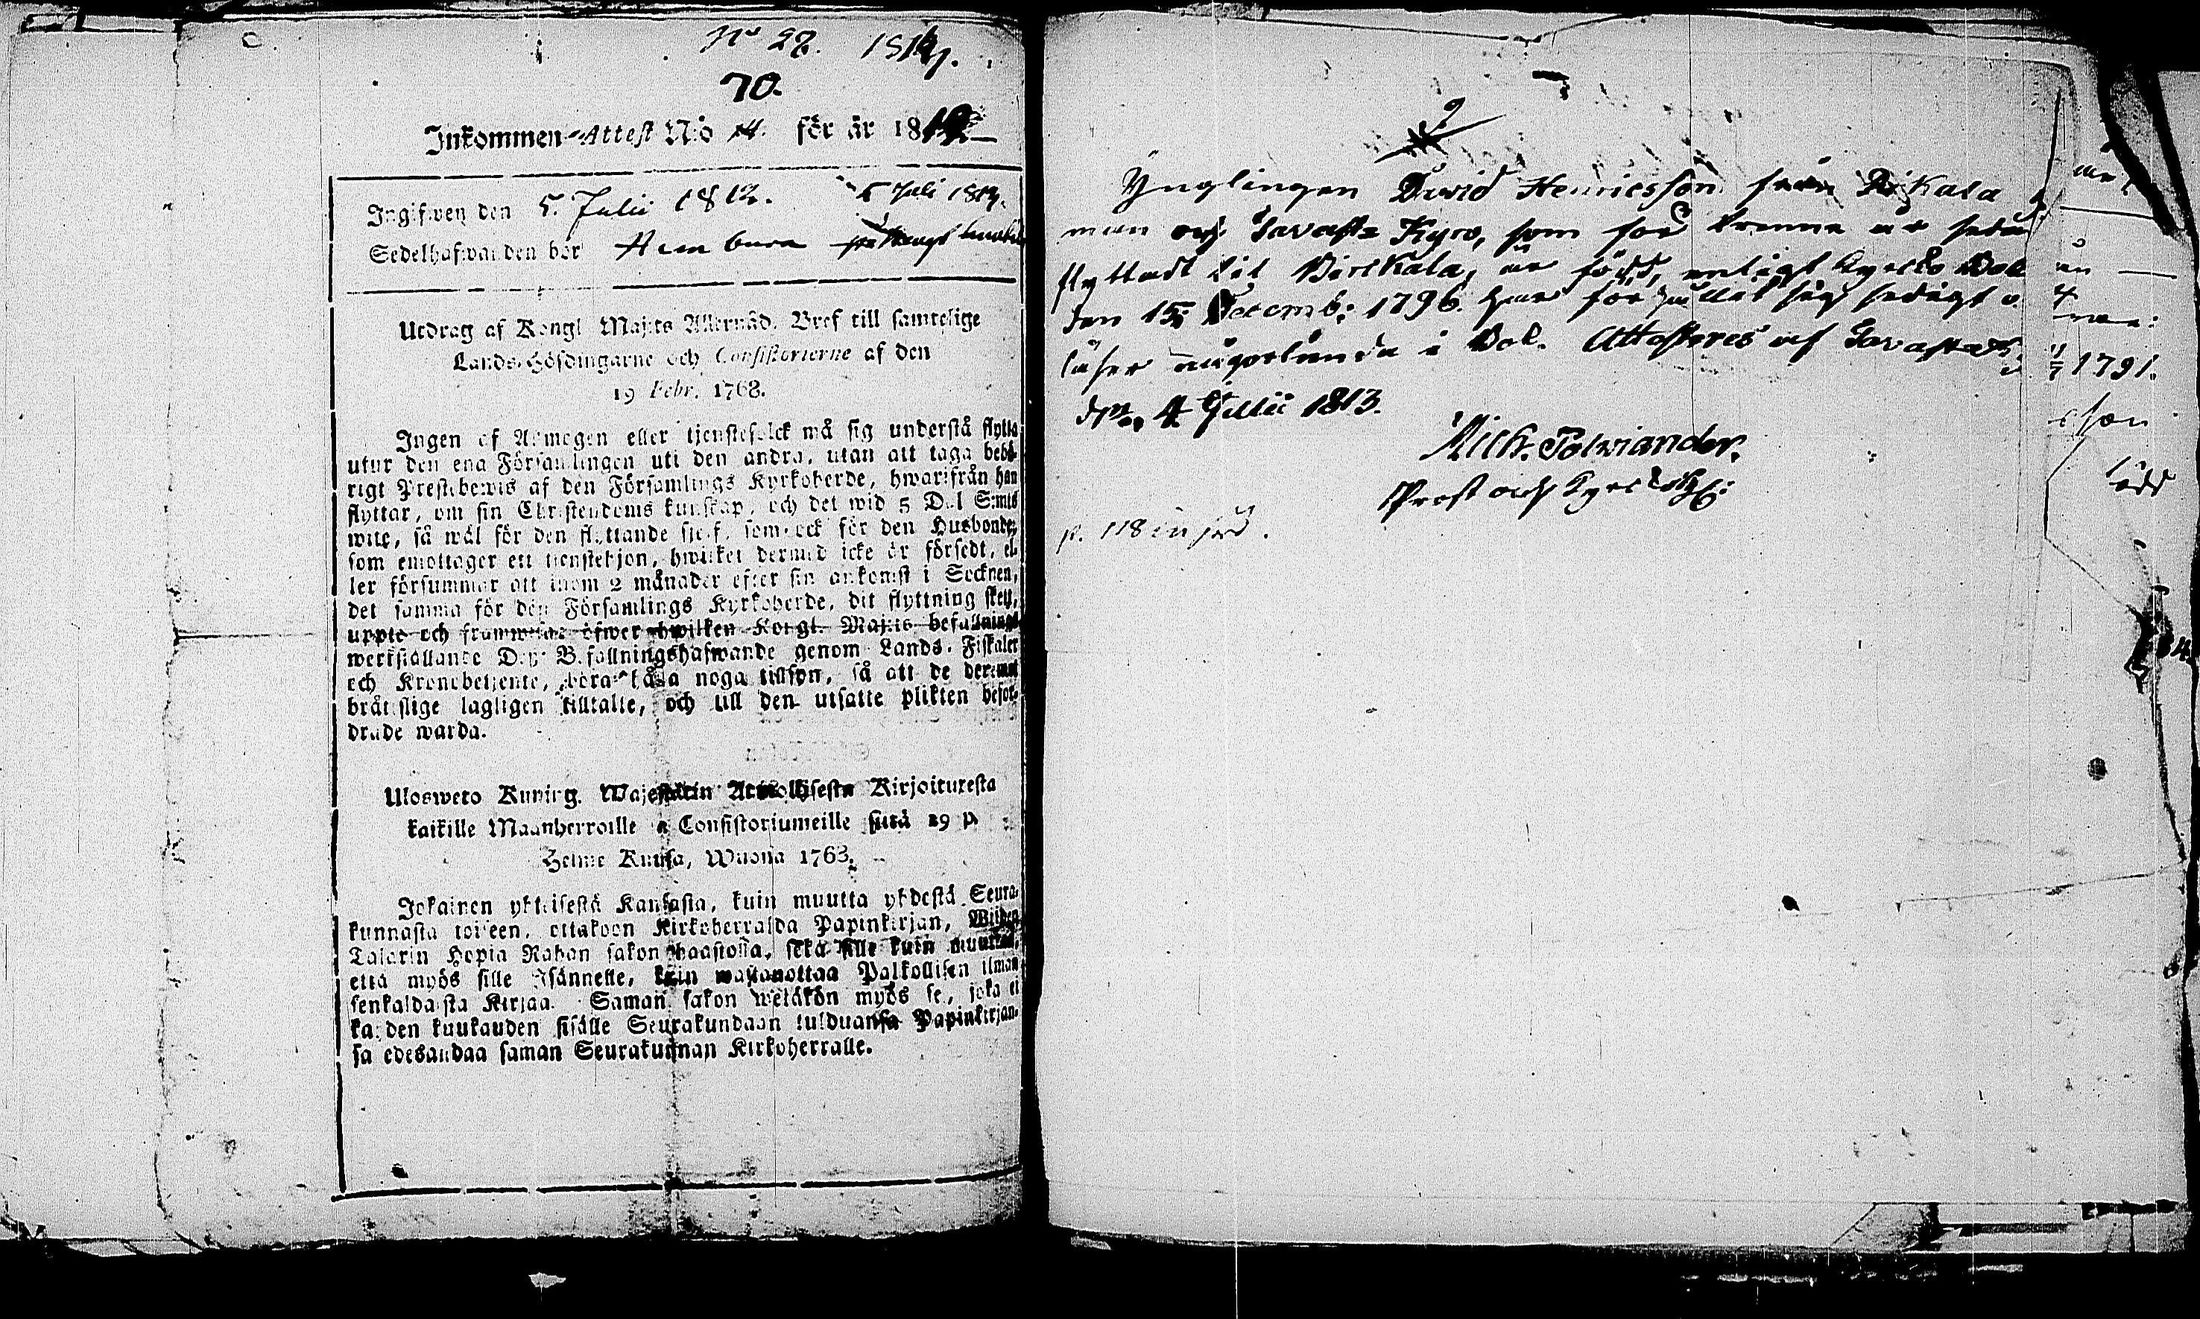 No 27. 1814.
70.
Inkommen Attest N:o 14. för år 1812
Ingifwen den 5. Julii 1812. 5 Juli 1814.
Sedelhafwanden bor
Utdrag af Kongl. Maj:ts Allernåd. Bref till samtelige
Lands-Höfdingarne och Consistorierne af den
19 Febr. 1768.
Ingen af Almogen eller tjenstefolck må sig understå flytta
utur den ena Församlingen uti den andra, utan att taga behö-
rigt Prestebewis af den Församlings Kyrkoherde, hwarifrån han
flyttar, om sin Christendoms kunskap, och det wid 5 Dal. S:mts
wite, så wäl för den flyttande sjelf, som ock för den Husbonde,
som emottager ett tienstehjon, hwilket dermed icke är försedt, el-
ler försummar att inom 2 månader efter sin ankomst i Socknen,
det samma för den Församlings Kyrkoherde, dit flyttning sker,
uppte och framwisa: öfwer hwilken Kongl. Maj:ts befallnings
werkställande Dess Befallningshafwande genom Lands-Fiskaler
och Kronobetjente, böra hålla noga tillsyn, så att de deremot
brätslige lagligen tilltalte, och till den utsatte plikten befor-
drade warda.
Ulosweto Kuning. Majestätin Armollisesta Kirjoituxesta
kaikille Maanherroille ja Consistoriumeille siitä 19 p.
Helme Kuusa, Wuona 1768.
Jokainen yhteisestä Kansasta, kuin muutta yhdestä Seura-
kunnasta toiseen, ottakoon Kirkoherralda Papinkirjan, Wiiden
Talarin Hopia Rahan sakon haastolla, sekä sille kuin muuttaa,
että myös sille Isännelle, kuin wastanottaa Palkollisen ilman
senkaldaista Kirjaa. Saman sakon wetäkön myös se, joka ei
kahden kuukauden sisälle Seurakundaan tulduansa Papinkirjan-
sa edesandaa saman Seurakunnan Kirkoherralle.
Ynglingen David Henricsson från Pikala
man och Tavast Kyro, som för trenne år sedan
flyttadt till Birkala, är född, enligt Kyrcko Bok
den 15 Decemb: 1796. har förhållit sig sedigt o
läser någorlunda i Bok. Attesteres af Tavastk.
den 4 Julii 1813.
Mich. Polviander.
Prost och Kyrckoh:
p. 118
1791.
son
född